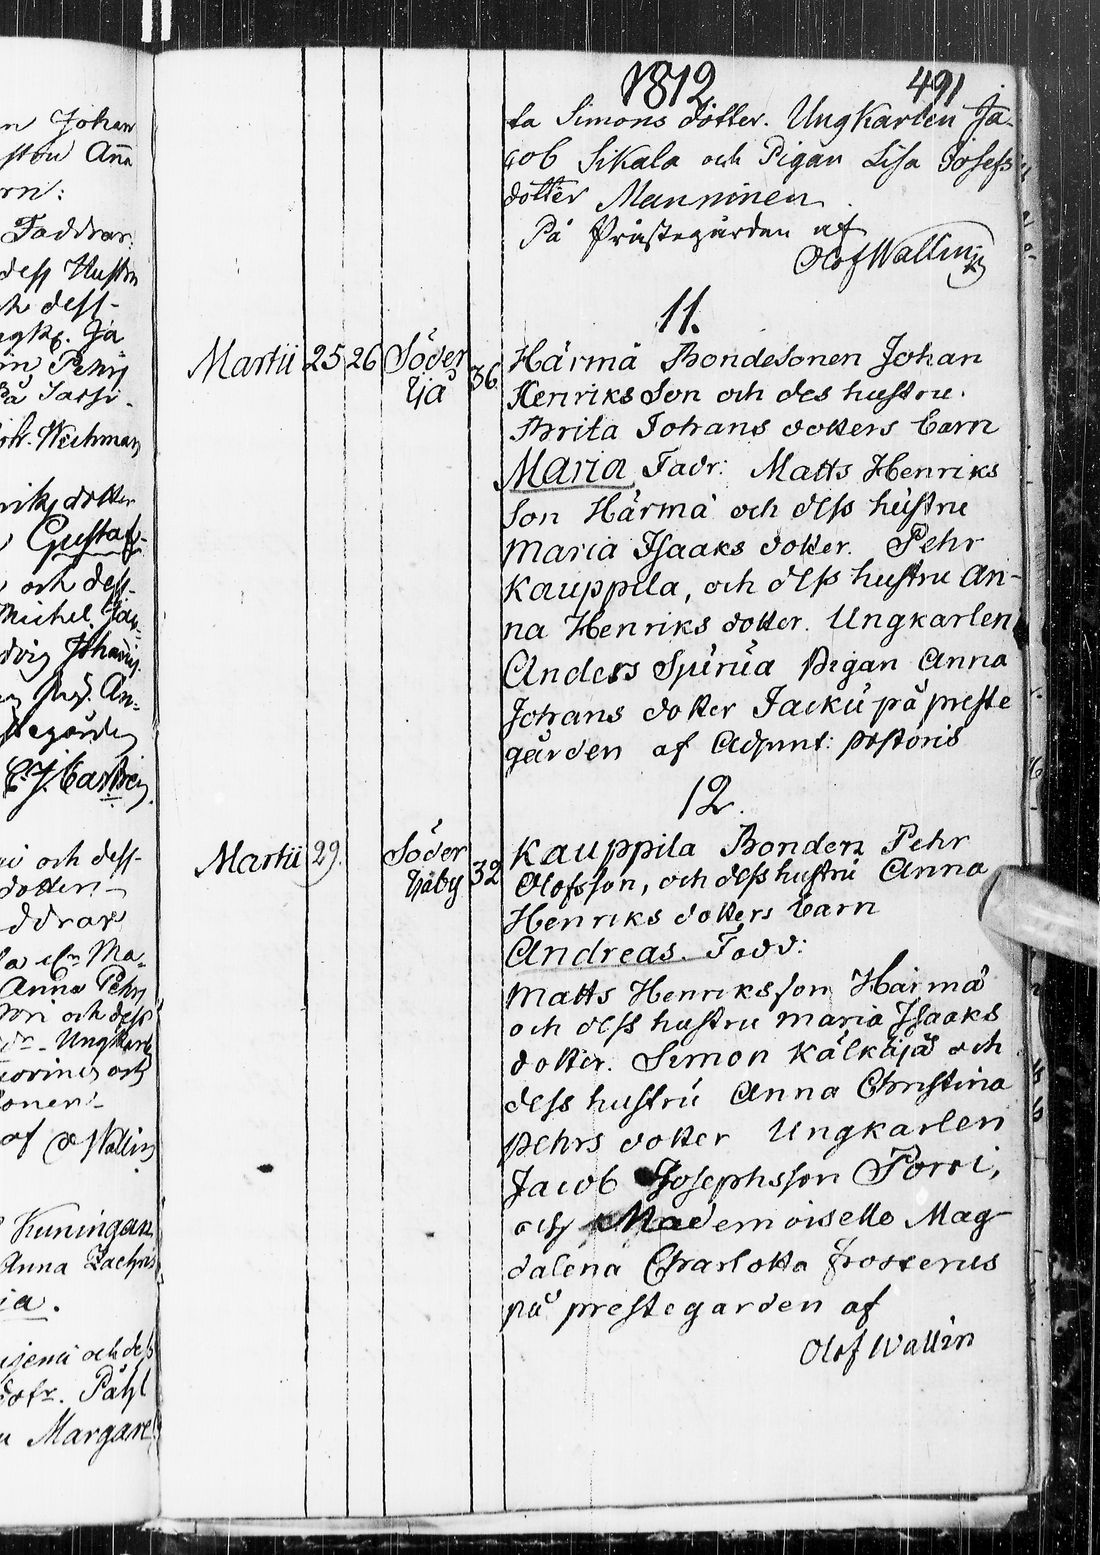 n Johan
stru Aña
rn:
Faddrar:
dess Hustru
ch dess-
ngk. Ja
in Pehrs
På Sarfi.
Joh. Wichman
riksdotter
Gustaf
och dess-
Michel. Jac
dvig Johans
An-
stegården
C. J.
ni och dess-
dotter
ddrar
la Ma-
Anna Pehrs
ori och dess
dr. Ungkarl
och
soner
af O Wallin
Kuningan
Anna Zachris
ia.
och dess
Påhl
u Margare
1812 491
ta Simons dotter. Ungkarlen Ja-
cob Sikala och Pigan Lisa Josefs
dotter Manninen
På Prästegården af
Olof Wallin
11.
Martii 25 26 Söder 36 Härmä Bondesonen Johan
bjä Henriks Son och des hustru
Brita Johans dotters barn
Maria Fadr: Matts Henriks
son Härmä och dess hustru
Maria Isaaks dotter. Pehr
Kauppila, och dess hustru An-
na Henriks dotter. Ungkarlen
Anders Spurúa Pigan Anna
Johans dotter Jackú på preste
gården af Adjunt: pastoris
12.
Martii 29. Söder 32 Kauppila Bonden Pehr
häby Olofsson, och dess hustru Anna
Henriks dotters barn
Andreas. Fadd:
Matts Henriksson Härmä
och dess hustru Maria Isaaks
dotter. Simon Kälkäjä och
dess hustrú Anna Christina
Pehrs dotter Ungkarlen
Jacob Josephsson Porri,
och Mademoiselle Mag-
dalena Charlotta Frosterus
på prestegarden af
Olof Wallin